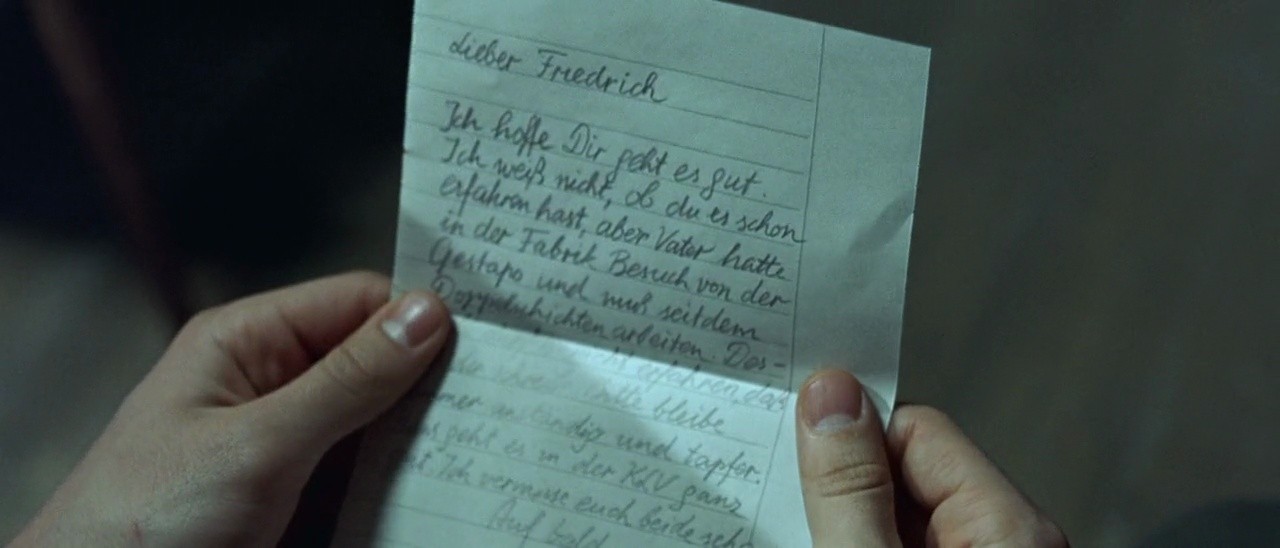 Lieber Friedrich
Ich hoffe Dir geht es gut.
Ich weiß nicht, ob du es schon
erfahren hast, aber Vater hatte
in der Fabrik Besuch von der
Gestapo und muß seitdem
Doppelschichten arbeiten. Des-
erfahren, daß
bleibe
anständig und tapfer.
geht es in der KLV ganz
Ich vermisse euch beide
Auf bald